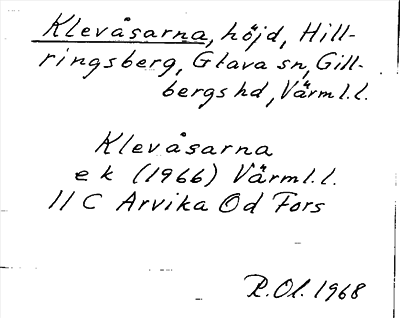 Klevåsarna, höjd, Hill-
ringsberg, Glava sn, Gill-
bergs hd, Värml. l.
Klevåsarna
e k (1966) Värml. l.
11 C Arvika Od Fors
R. Ol. 1968